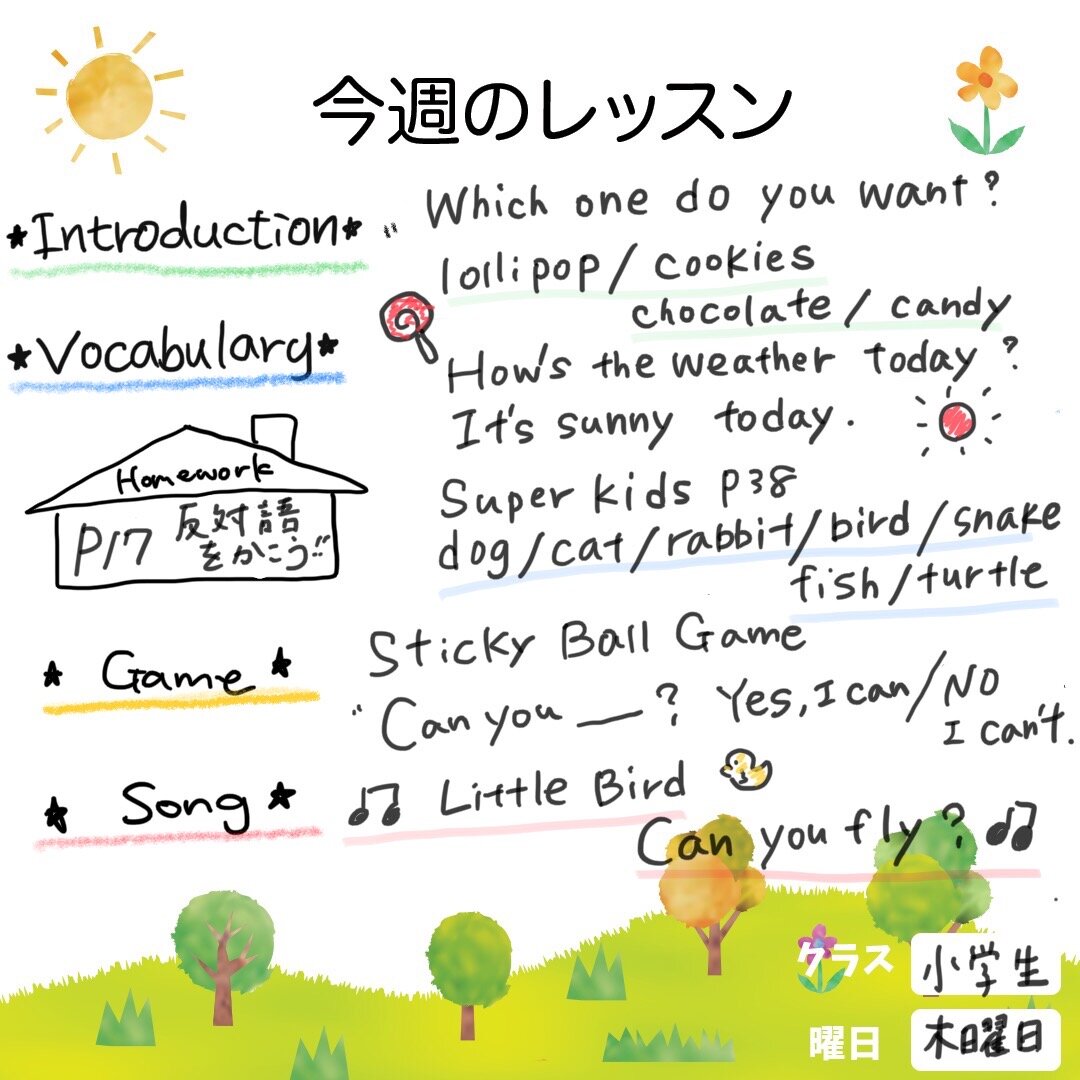 今週のレッスン
★Introduction★ " Which one do you want?
lollipop / cookies
chocolate / candy
★Vocabulary★
How's the weather today?
It's sunny today.
Homework
P17 反対語
をかこう!!
Super kids P38
dog/cat/rabbit/bird/snake
fish/turtle
★ Game ★
Sticky Ball Game
"Can you __? Yes, I can/NO
I can't.
★ Song ★ ♫ Little Bird
Can you fly? ♫
クラス 小学生
曜日 木曜日